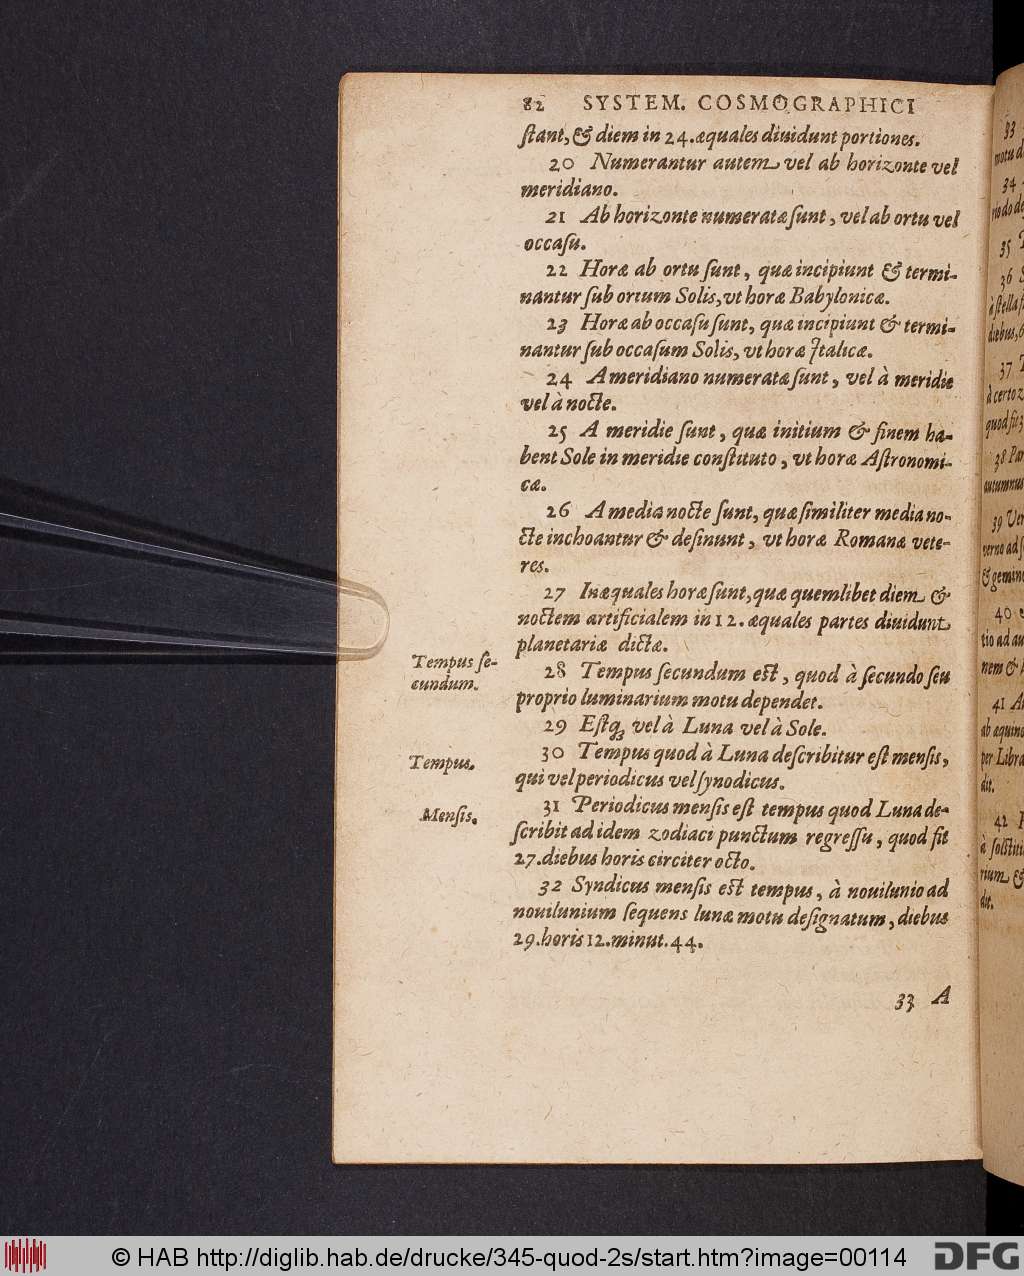 82 SYSTEM. COSMOGRAPHICI
ſtant, & diem in 24. æquales diuidunt portiones.
20 Numerantur autem vel ab horizonte vel
meridiano.
21 Ab horizonte numeratæ ſunt, vel ab ortu vel
occaſu.
22 Horæ ab ortu ſunt, quæ incipiunt & termi-
nantur ſub ortum Solis, vt horæ Babylonicæ.
23 Horæ ab occaſu ſunt, quæ incipiunt & termi-
nantur ſub occaſum Solis, vt horæ Italicæ.
24 A meridiano numeratæ ſunt, vel à meridie
vel à nocte.
25 A meridie ſunt, quæ initium & finem ha-
bent Sole in meridie conſtituto, vt horæ Aſtronomi-
cæ.
26 A media nocte ſunt, quæ ſimiliter media no-
cte inchoantur & deſinunt, vt horæ Romanæ vete-
res.
27 Inæquales horæ ſunt, quæ quemlibet diem &
noctem artificialem in 12. æquales partes diuidunt
planetariæ dictæ.
Tempus ſe-
cundum.
28 Tempus ſecundum eſt, quod à ſecundo ſeu
proprio luminarium motu dependet.
29 Eſtq3 vel à Luna vel à Sole.
Tempus.
30 Tempus quod à Luna deſcribitur eſt menſis,
qui vel periodicus vel ſynodicus.
Menſis.
31 Periodicus menſis eſt tempus quod Luna de-
ſcribit ad idem zodiaci punctum regreſſu, quod fit
27. diebus horis circiter octo.
32 Syndicus menſis eſt tempus, à nouilunio ad
nouilunium ſequens lunæ motu deſignatum, diebus
29. horis 12. minut. 44.
33 A
33
motu
34
35
36
à ſtella
diebus,
37
quod ſit
38
autumnus
39 Ver
verno ad
40
tio ad
nem &
41
per Libra
dit.
42
à ſolſtiti
rium &
dit.
© HAB http://diglib.hab.de/drucke/345-quod-2s/start.htm?image=00114
DFG